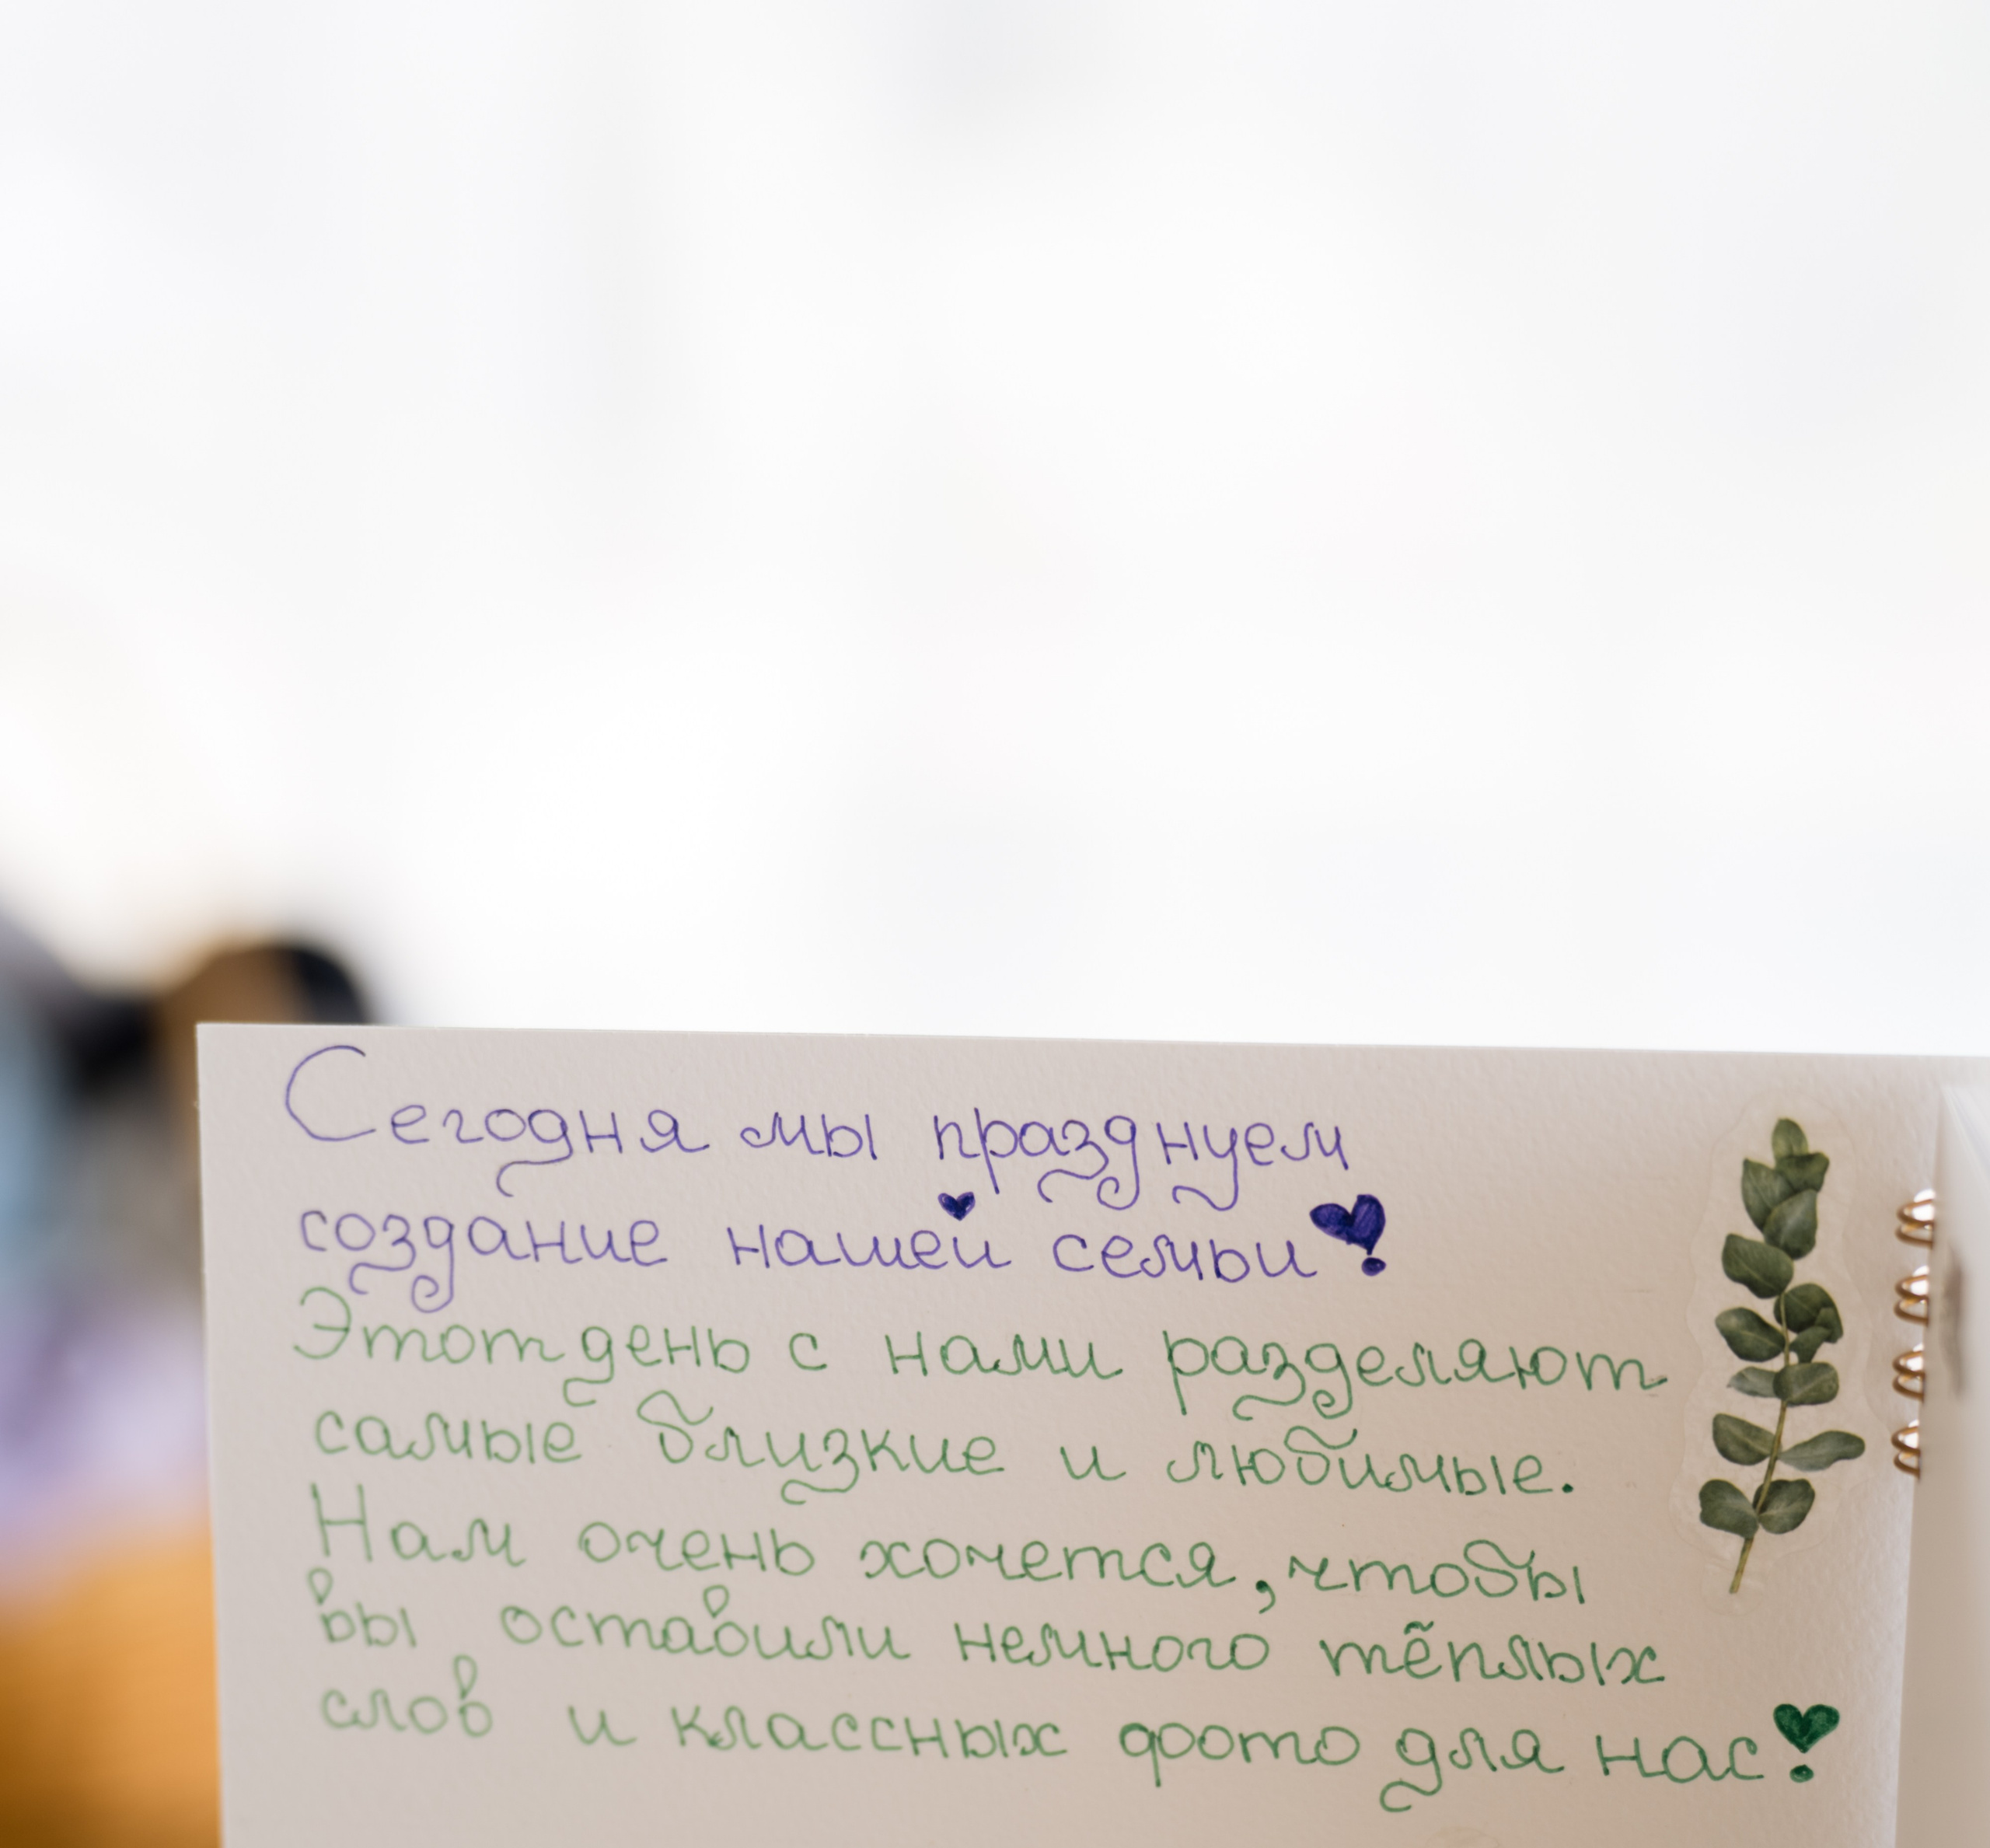 Сегодня мы празднуем
создание нашей семьи!
Этот день с нами разделяют
самые близкие и любимые.
Нам очень хочется, чтобы
вы оставили немного тёплых
слов и классных фото для нас!